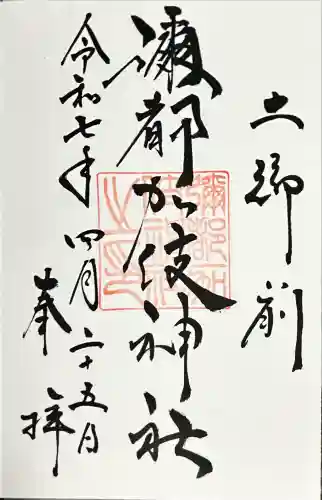 土郷前
瀰都加伎神社
令和七年四月二十五日
奉拝